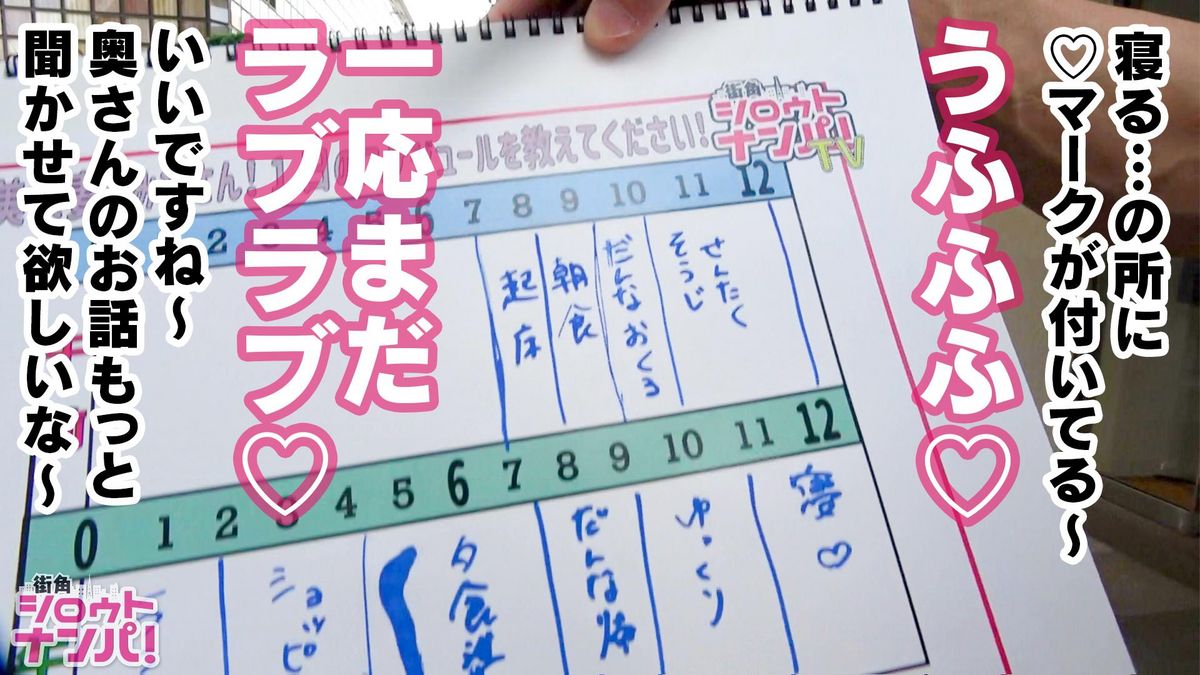 寝る…の所に
♡マークが付いてる～
うふふふ♡
一応まだ
ラブラブ♡
いいですね～
奥さんのお話もっと
聞かせて欲しいな～
街角
シロウト
ナンパ!
TV
さん!1日の
ュールを教えてください!
2 3 4 5 6 7 8 9 10 11 12
起床
朝食
だんなおくる
せんたく
そうじ
0 1 2 3 4 5 6 7 8 9 10 11 12
ショッピ
夕食
だんな帰
ゆっくり
寝♡
街角
シロウト
ナンパ!